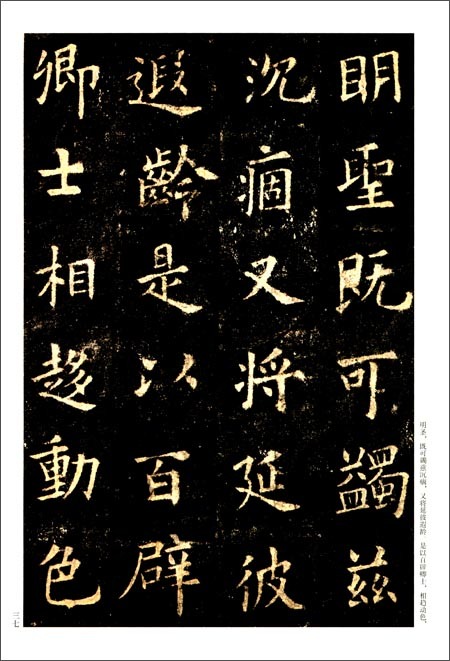 眀聖既可蠲兹
沉痼又将延彼
遐齡是以百辟
卿士相趍動色
明圣，既可蠲兹沉痼，又将延彼遐龄。是以百辟卿士，相趋动色，
三七